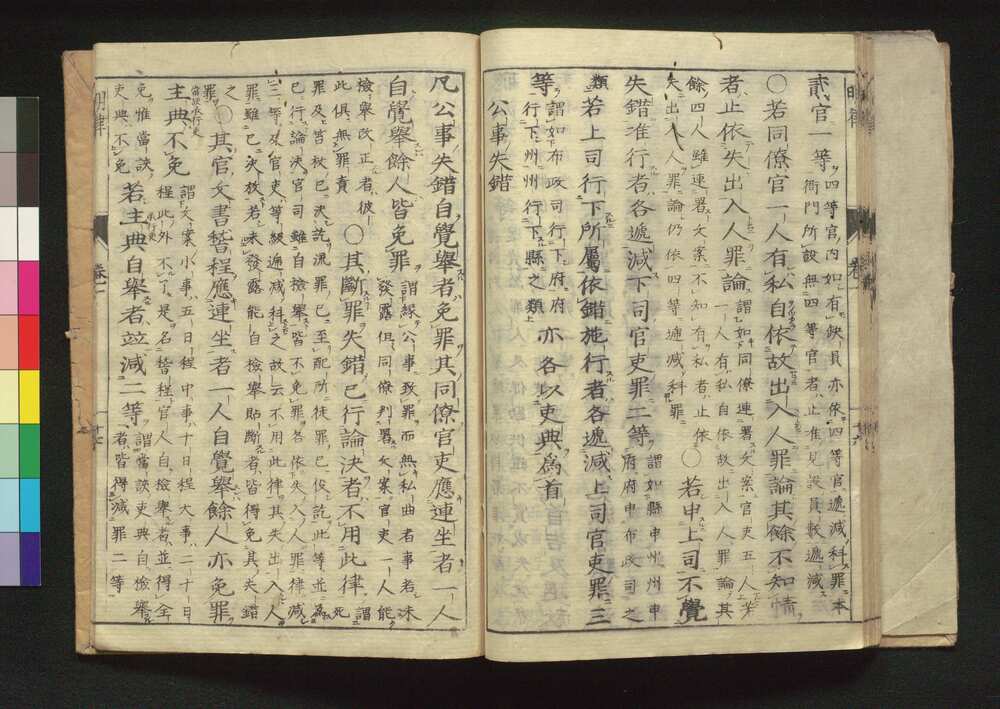 明律
卷一
十六
貳官一等
四等官内如有缺員亦依四等官遞減科罪本
衙門所設無四等官者止准見設員數遞減
○若同僚官一人有私自依故出入人罪論其餘不知情
者止依失出入人罪論
謂如同僚連署文案官吏五人若
一人有私自依故出入人罪論其
餘四人雖連署文案不知有私者止依
失出入人罪論仍依四等遞減科罪
○若申上司不覺
失錯准行者各遞減下司官吏罪二等
謂如縣申州州申
府府申布政司之
類
若上司行下所屬依錯施行者各遞減上司官吏罪三
等
謂如布政司行下府府
行下州州行下縣之類
亦各以吏典為首
公事失錯
凡公事失錯自覺舉者免罪其同僚官吏應連坐者一人
自覺舉餘人皆免罪
謂緣公事致罪而無私曲者事若未
發露但同僚判署文案官吏一人能
檢舉改正者彼
此俱無罪責
○其斷罪失錯已行論決者不用此律
謂
死
罪及笞杖已決訖流罪已至配所徒罪已役訖此等並為
已行論決官司雖自檢舉皆不免罪各依失入人罪律減
三等及官吏等級遞減科之故云不用此律其失出入人
罪雖已決放若未發露能自檢舉貼斷者皆得免其失錯
之
罪
○其官文書稽程應連坐者一人自覺舉餘人亦免罪
主典不免
謂文案小事五日程中事十日程大事二十日
程此外不了是名稽程官人自檢舉者並得全
免惟當該
吏典不免
若主典自舉者並減二等
謂當該吏典自檢舉
者皆得減罪二等
明律
卷一
十七